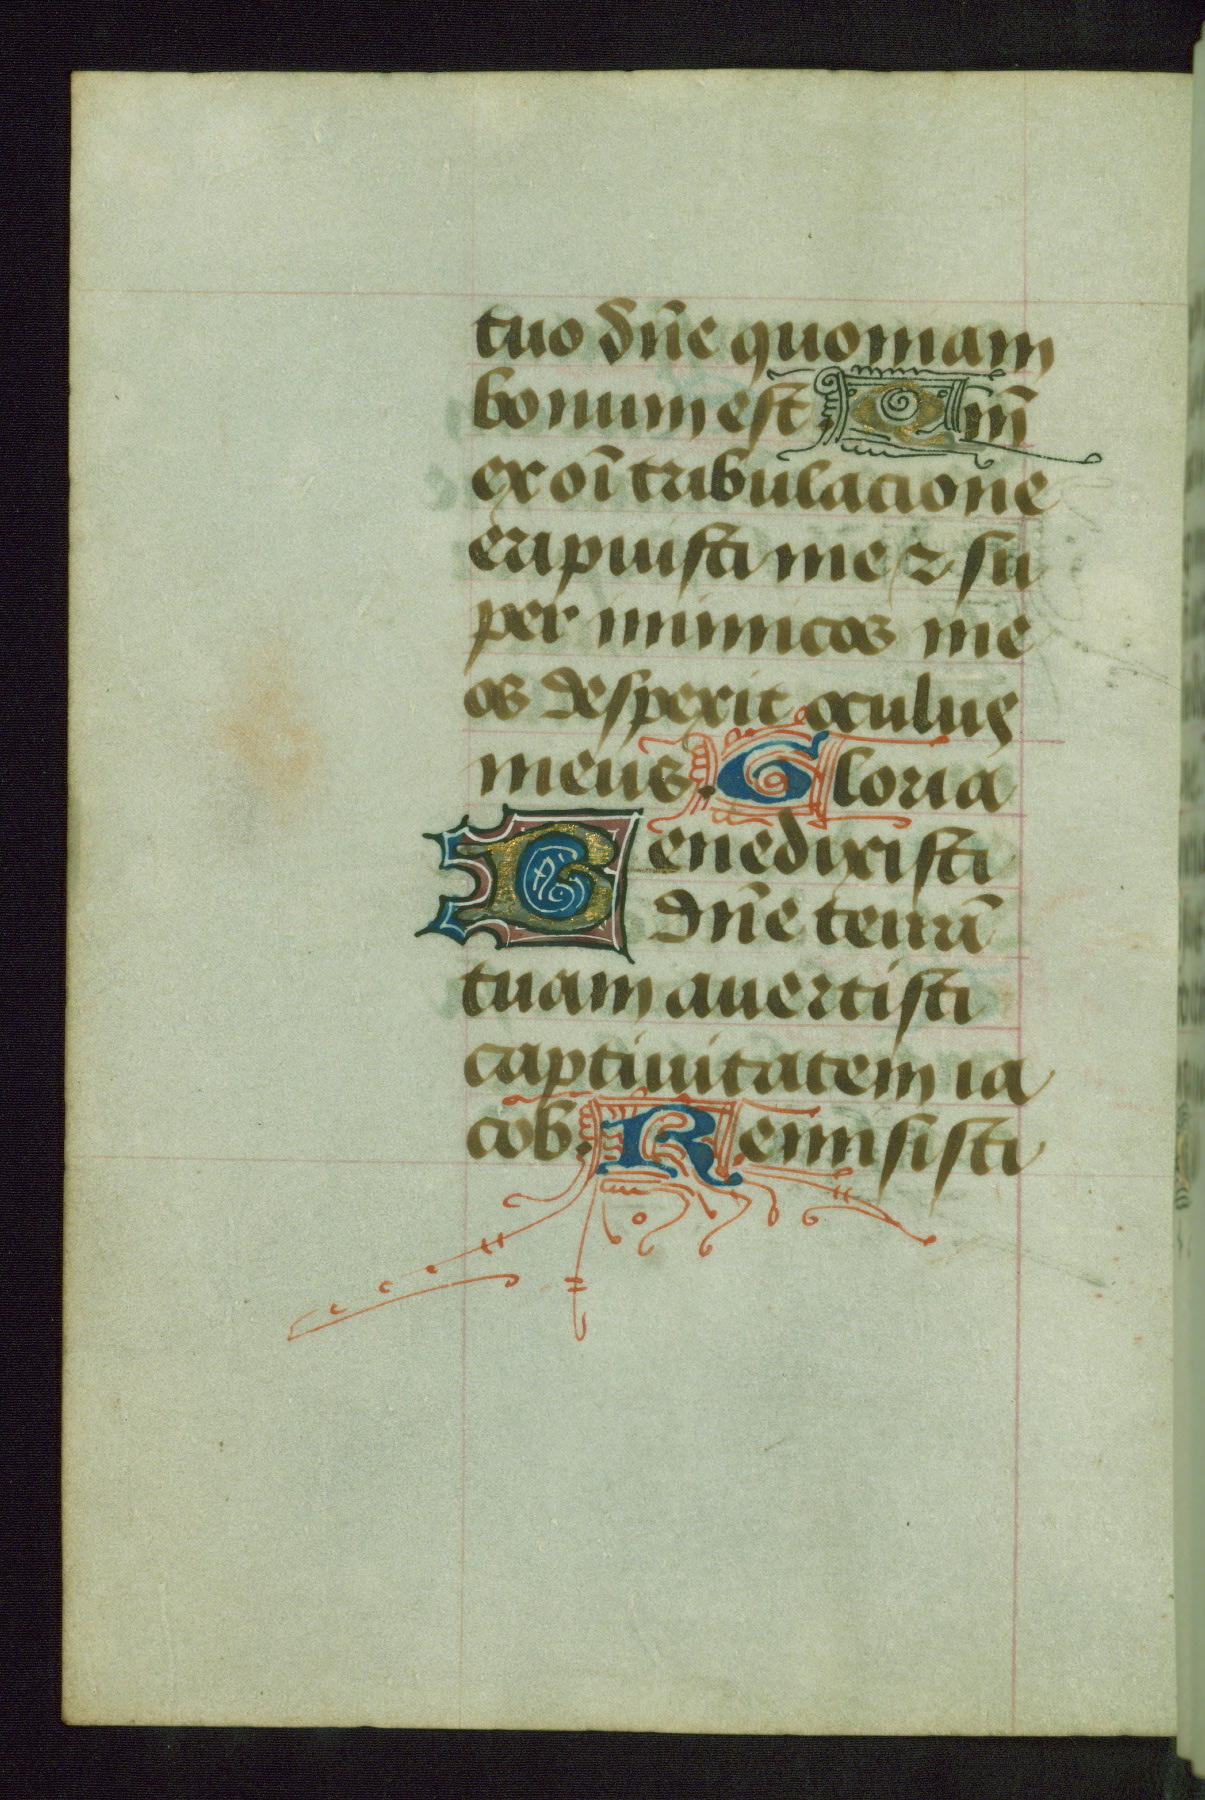 tuo dn̄e quoniam
bonum est. Qm̄
ex oı̄ tribulacione
eripuisti me ⁊ su
per inimicos me
os despexit oculus
meus. Gloria
Benedixisti
dn̄e terrā
tuam auertisti
captiuitatem ia
cob. Remisisti